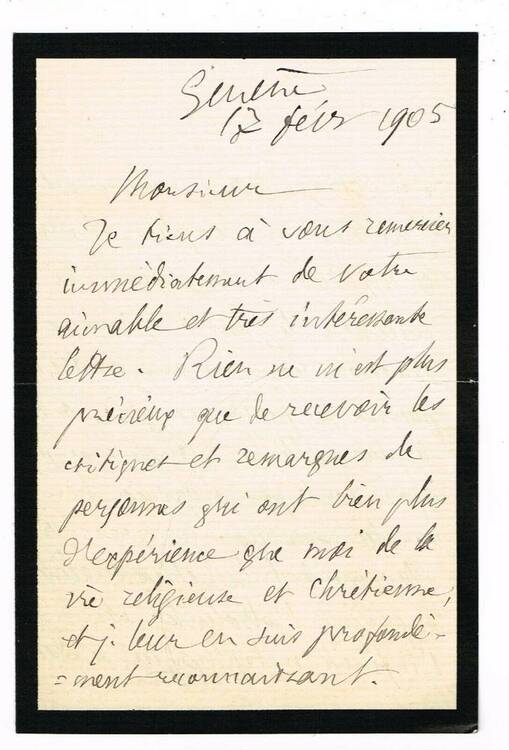 Genève
17 févr 1905
Monsieur
Je tiens à vous remercier
immédiatement de votre
aimable et très intéressante
lettre. Rien ne m'est plus
précieux que de recevoir les
critiques et remarques de
personnes qui ont bien plus
d'expérience que moi de la
vie religieuse et chrétienne,
et je leur en suis profondé-
=ment reconnaissant.